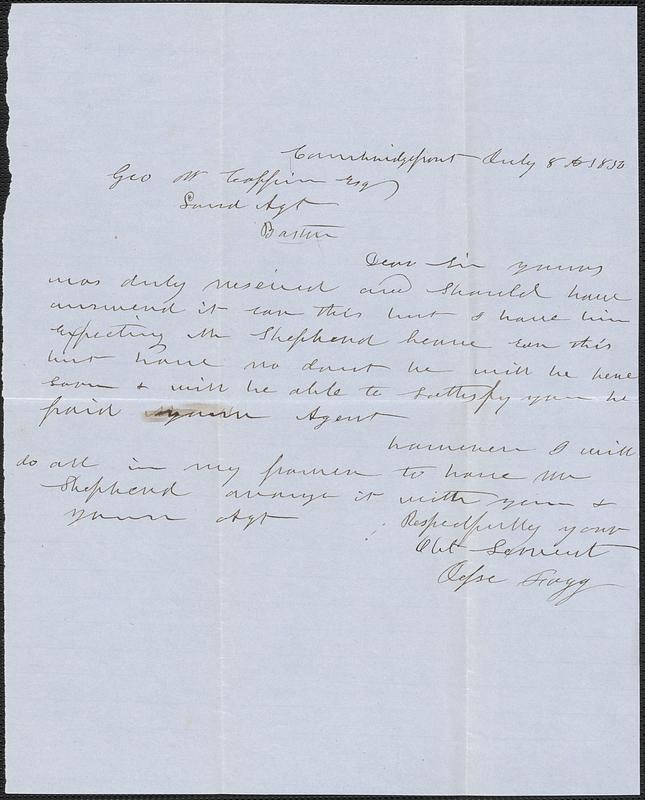 Cambridgeport July 8th 1850
Geo W Coffin Esq
Land Agt
Boston
Dear Sir yours
was duly reseived and should have
answerd it eare this but I have bin
Expecting Mr Shepherd heare eare this
but have no dout he will be here
soon & will be able to sattisfy you he
paid your Agent
however I will
do all in my power to have Mr
Shepherd arange it with you &
your Agt
Respectfully your
Obt Servent
Jesse Fogg